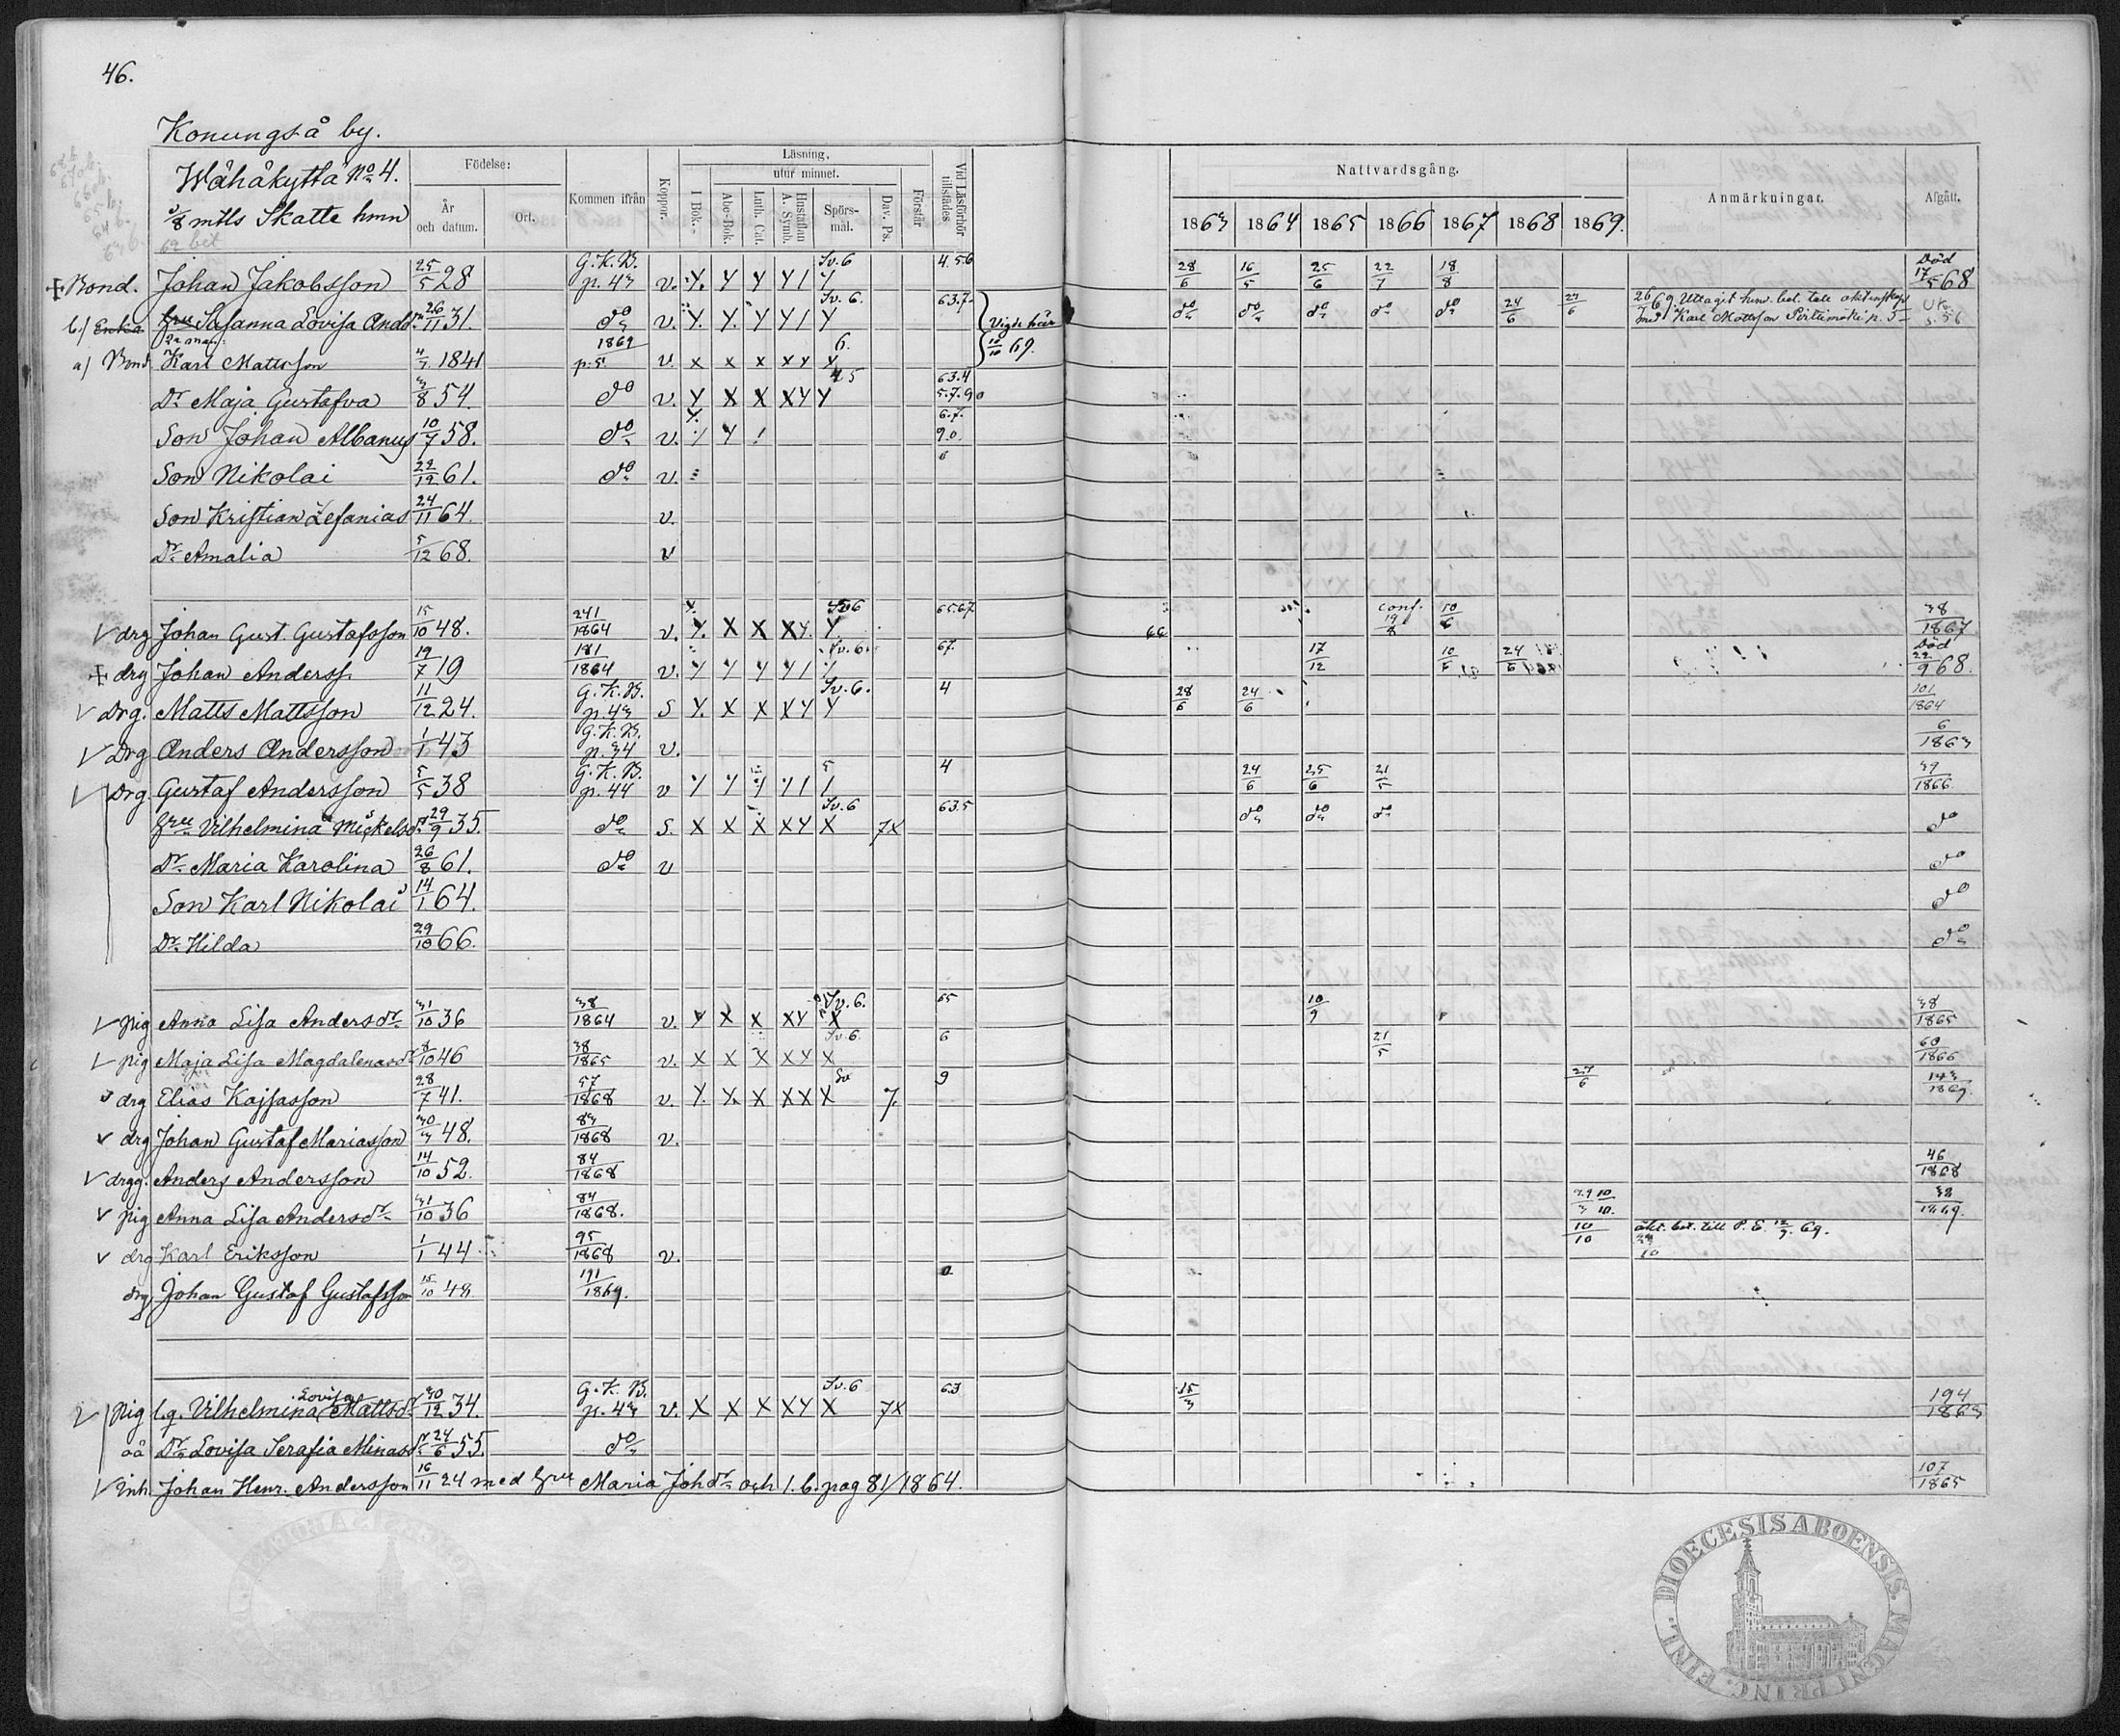 46.
Konungså by.
Wähäkyttä No 4.
3/8 mtls Skatte hmn
Födelse:
År och datum.
Ort.
Kommen ifrån
Koppor.
Läsning,
utur minnet.
I Bok.
Abc-Bok.
Luth. Cat.
Hustaflan A. Symb.
Spörsmål.
Dav. Ps.
Förstår
Vid Läsförhör tillstädes
Nattvardsgång.
1863 1864 1865 1866 1867 1868 1869.
Anmärkningar.
Afgått.
Bond. Johan Jakobsson 25/5 28 G.K.B. p. 43 v. Sv.6 4.5.6 28/6 16/5 25/6 22/7 18/8 Död 17/5 68
b.) Enka hru Susanna Lovisa Andsdr 26/11 31. do v. Sv. 6. 63.7. Vigde här 10/10 69. do do do do do 24/6 27/6
2a man:
a) Bond Karl Mattsson 4/3 1841 1869 p. 5. v. x x x x y 6.
Dr Maja Gustafva 3/8 54. do v. y x x x y y 63.4 5.7.9
Son Johan Albanus 10/7 58. do v. 6.7. 9.0.
Son Nikolai 22/12 61. do v.
Son Kristian Zefanias 24/11 64. v.
Dr Amalia 5/12 68. v
drg Johan Gust. Gustafsson 15/10 48. 241/1864 v. Sv6 65.67 66 Conf. 19/8 10/6 38/1867
drg Johan Anderss. 19/7 19 181/1864 v. Sv.6. 67. 17/12 10/6 24/6 Död 22/9 68.
Drg. Matts Mattsson 11/12 24. G.K.B. p. 43 S Sv. 6. 4 28/6 24/6 101/1864
Drg Anders Andersson 1/1 43 G.K.B. p. 34 v. 6/1863
Drg. Gustaf Andersson 5/5 38 G.K.B. p. 44 v 5 4 24/6 25/6 21/5 39/1866
hru Vilhelmina Mickelsdr 29/9 35. do S. x x x x y x 7x Sv.6 63.5 do do do do
Dr Maria Karolina 26/8 61. do v do
Son Karl Nikolai 14/1 64. do
Dr Hilda 29/10 66. do
pig Anna Lisa Andersdr 31/10 36 38/1864 v. y x x x y x Sv. 6. 65 10/9 38/1865
pig Maja Lisa Magdalenasdr 8/10 46 38/1865 v. x x x x y x Sv. 6. 6 21/5 60/1866
drg Elias Kajsasson 28/7 41. 57/1868 v. y. y. x x x x Sv 7. 9 27/6 143/1869.
drg Johan Gustaf Mariasson 30/3 48. 83/1868 v.
drgg. Anders Andersson 14/10 52. 84/1868 46/1868
pig Anna Lisa Andersdr 31/10 36 84/1868. 38/1869.
drg Karl Eriksson 1/1 44 95/1868 v. 10/10 äkt. bet. till P. E. 12/9 69.
drg Johan Gustaf Gustafsson 15/10 48 191/1869.
Pig l.q. Vilhelmina Lovisa Mattsdr 30/12 34. G.K.B. p. 43 v. x x x x y x 7x Sv.6 63 15/3 194/1863
oä Dr Lovisa Serafia Minasdr 24/6 55. do
Inh. Johan Henr. Andersson 16/11 24 med hru Maria Johdr och 1.b. pag 81/1864. 107/1865
DIOECESIS ABOENSIS. MAGNI PRINC. FINL.